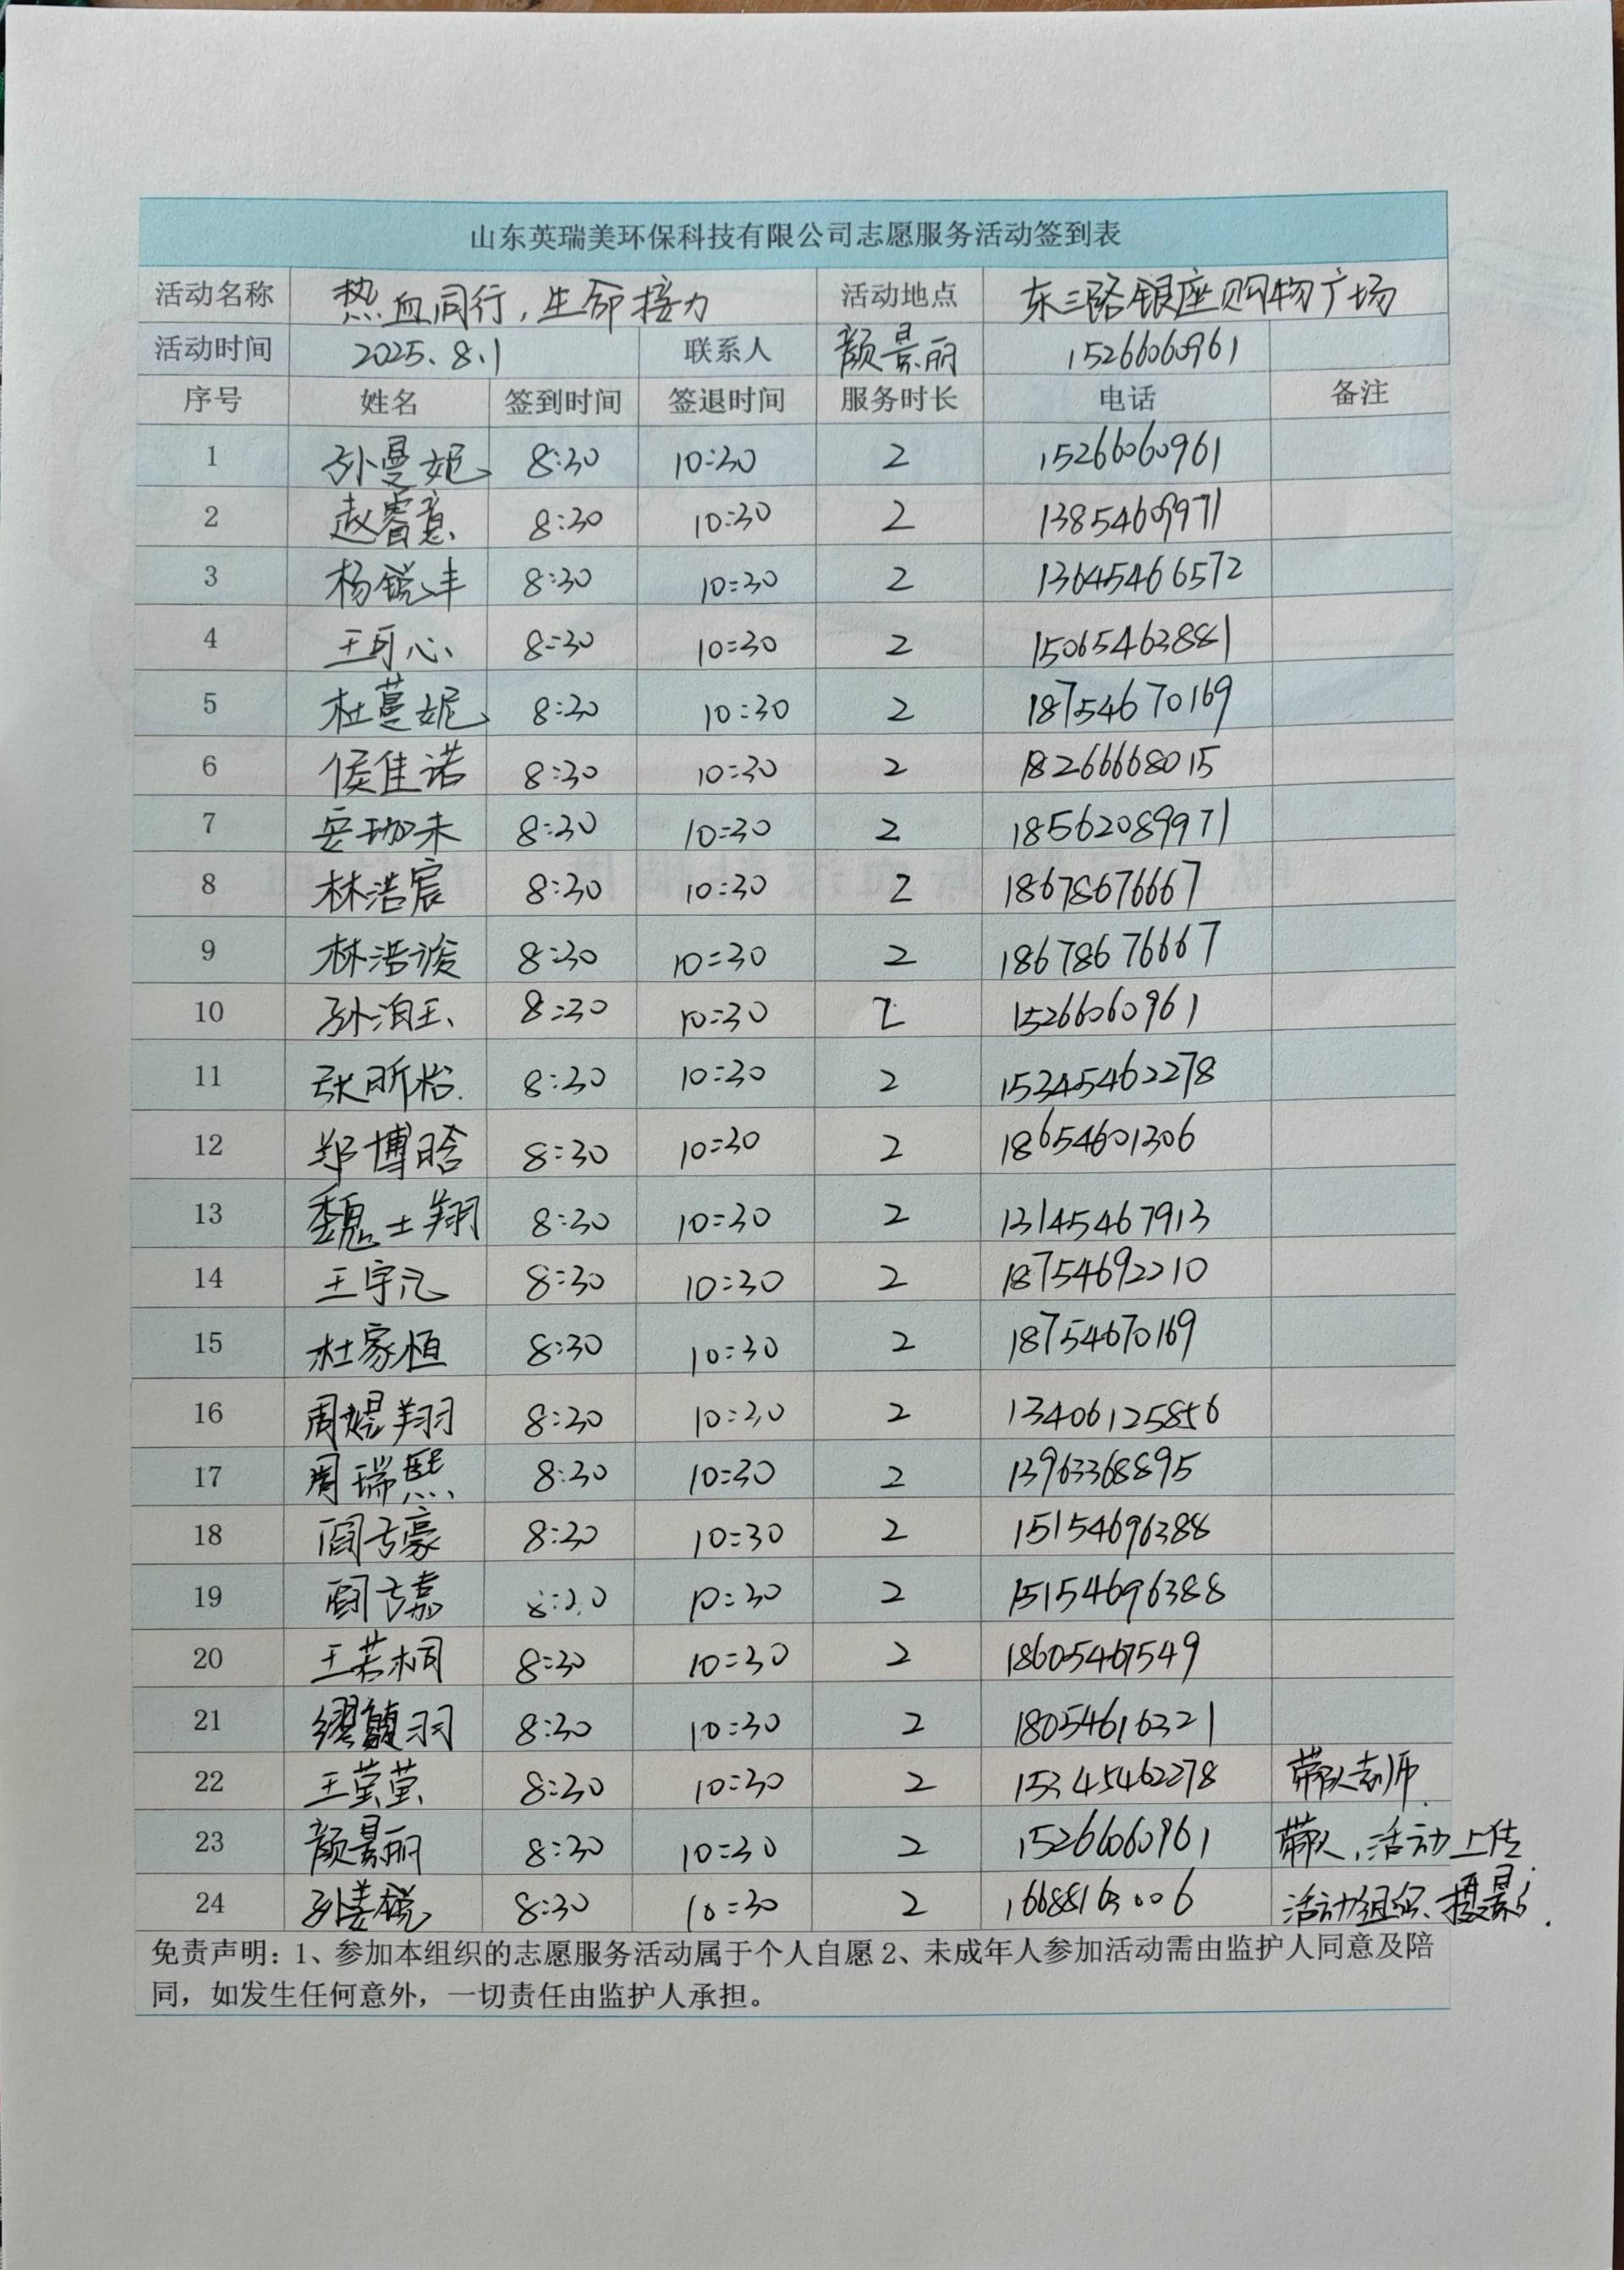 山东英瑞美环保科技有限公司志愿服务活动签到表
活动名称 热血同行,生命接力 活动地点 东三路银座购物广场
活动时间 2025.8.1 联系人 颜景丽 15266060961
序号 姓名 签到时间 签退时间 服务时长 电话 备注
1 孙曼妮 8:30 10:30 2 15266060961
2 赵睿意 8:30 10:30 2 13854609971
3 杨锐丰 8:30 10:30 2 13645466572
4 王可心 8:30 10:30 2 15065463881
5 杜蔓妮 8:30 10:30 2 18754670169
6 侯佳诺 8:30 10:30 2 18266668015
7 安珈未 8:30 10:30 2 18562089971
8 林浩宸 8:30 10:30 2 18678676667
9 林浩谈 8:30 10:30 2 18678676667
10 孙泊王 8:30 10:30 2 15266060961
11 张昕怡 8:30 10:30 2 15345462278
12 郑博晗 8:30 10:30 2 18654601306
13 魏士翔 8:30 10:30 2 13145467913
14 王宇汜 8:30 10:30 2 18754692210
15 杜家恒 8:30 10:30 2 18754670169
16 周焜翔 8:30 10:30 2 13406125856
17 周瑞熙 8:30 10:30 2 13963368895
18 闫方豪 8:30 10:30 2 15154696388
19 闫方嘉 8:30 10:30 2 15154696388
20 王若桐 8:30 10:30 2 18605467549
21 缪馥羽 8:30 10:30 2 18054616321
22 王莹莹 8:30 10:30 2 15345462278 带队老师
23 颜景丽 8:30 10:30 2 15266060961 带队,活动上传
24 孙姜锐 8:30 10:30 2 16688163006 活动组织、摄影.
免责声明:1、参加本组织的志愿服务活动属于个人自愿2、未成年人参加活动需由监护人同意及陪
同,如发生任何意外,一切责任由监护人承担。